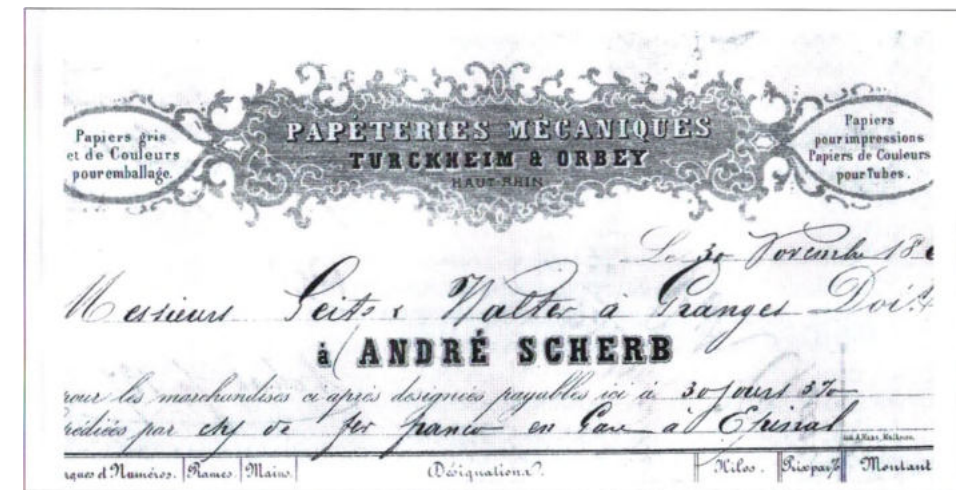 PAPÉTERIES MÉCANIQUES
TURCKHEIM & ORBEY
HAUT-RHIN
Papiers gris
et de Couleurs
pour emballage.
Papiers
pour impressions
Papiers de Couleurs
pour Tubes.
Le 30 Novembre 18
Messieurs Seitz & Walter à Granges Doi.t
à ANDRÉ SCHERB
pour les marchandises ci après désignées payables ici à 30 jours 3%
pédiées par chf de fer franco en Gare à Epinal
rques et Numéros. Rames. Mains. Désignations. Kilos. Prix par % Montant